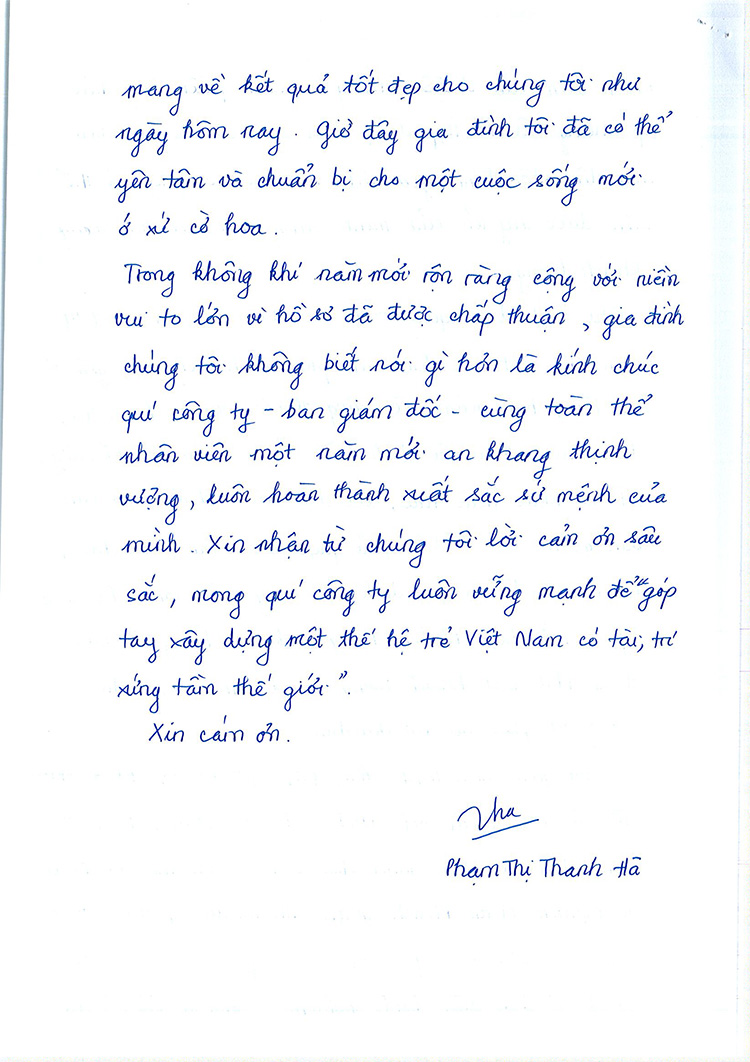 mang về kết quả tốt đẹp cho chúng tôi như
ngày hôm nay. Giờ đây gia đình tôi đã có thể
yên tâm và chuẩn bị cho một cuộc sống mới
ở xứ cờ hoa.
Trong không khí năm mới rộn ràng cộng với niềm
vui to lớn vì hồ sơ đã được chấp thuận, gia đình
chúng tôi không biết nói gì hơn là kính chúc
quí công ty - ban giám đốc - cùng toàn thể
nhân viên một năm mới an khang thịnh
vượng, luôn hoàn thành xuất sắc sứ mệnh của
mình. Xin nhận từ chúng tôi lời cảm ơn sâu
sắc, mong quí công ty luôn vững mạnh để "góp
tay xây dựng một thế hệ trẻ Việt Nam có tài, trí
xứng tầm thế giới".
Xin cám ơn.
Phạm Thị Thanh Hà